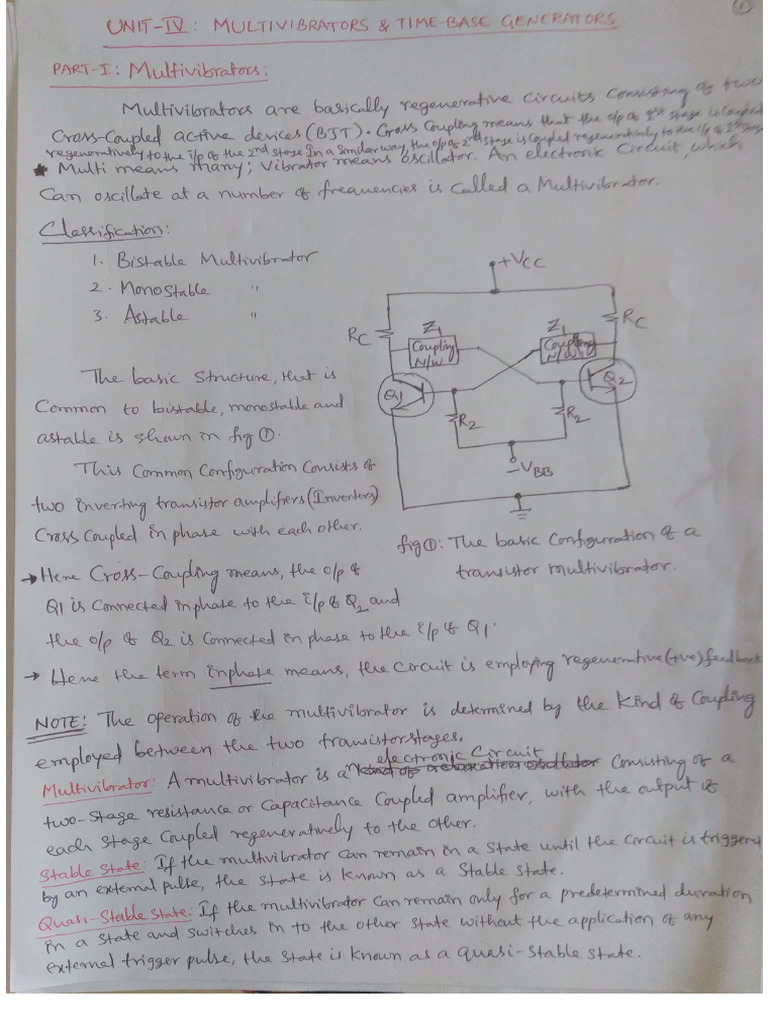 1
UNIT-IV: MULTIVIBRATORS & TIME-BASE GENERATORS
PART-I: Multivibrators:
Multivibrators are basically regenerative circuits consisting of two
Cross-Coupled active devices (BJT). Cross Coupling means that the o/p of 1st stage is coupled
regeneratively to the i/p of the 2nd stage. In a similar way, the o/p of 2nd stage is coupled regeneratively to the i/p of 1st stage
* Multi means many; Vibrator means oscillator. An electronic circuit, which
Can oscillate at a number of frequencies is called a Multivibrator.
Classification:
1. Bistable Multivibrator
2. Monostable "
3. Astable "
+VCC
RC
Z1
Coupling
N/W
Z1
Coupling
N/W
RC
Q1
Q2
R2
R2
-VBB
fig①: The basic Configuration of a
transistor multivibrator.
The basic structure, that is
Common to bistable, monostable and
astable is shown in fig ①.
This Common Configuration Consists of
two inverting transistor amplifiers (Inverters)
Cross Coupled in phase with each other.
→ Here Cross-Coupling means, the o/p of
Q1 is Connected inphase to the i/p of Q2 and
the o/p of Q2 is Connected in phase to the i/p of Q1.
→ Here the term inphase means, the circuit is employing regenerative (+ve) feedback
NOTE: The operation of the multivibrator is determined by the kind of Coupling
employed between the two transistor stages.
electronic Circuit
Multivibrator: A multivibrator is an kind of a relaxation oscillator Consisting of a
two-stage resistance or Capacitance Coupled amplifier, with the output of
each stage Coupled regeneratively to the other.
Stable State: If the multvibrator can remain in a state until the circuit is triggered
by an external pulse, the state is known as a stable state.
Quasi-Stable State: If the multivibrator can remain only for a predetermined duration
in a state and switches in to the other state without the application of any
external trigger pulse, the state is known as a quasi-stable state.